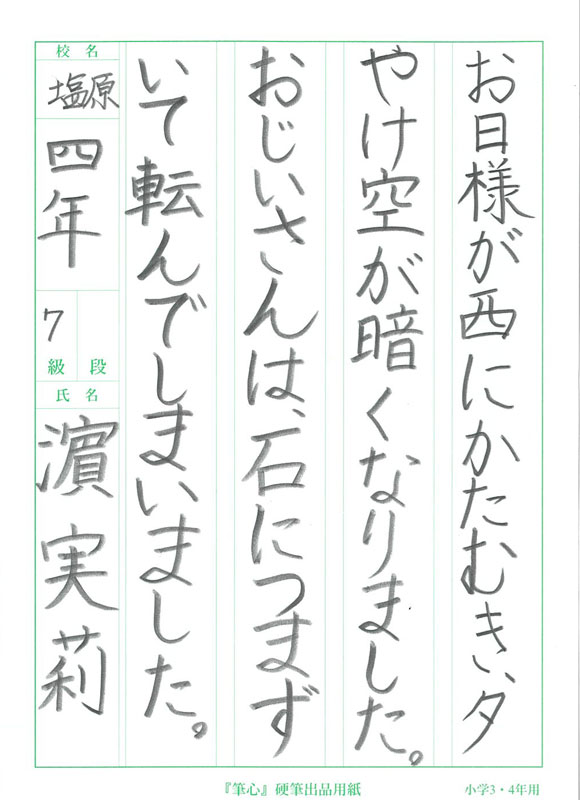 お日様が西にかたむき、夕
やけ空が暗くなりました。
おじいさんは、石につまず
いて転んでしまいました。
校名
塩原
四年
7
級 段
氏名
濵実莉
『筆心』硬筆出品用紙
小学3・4年用